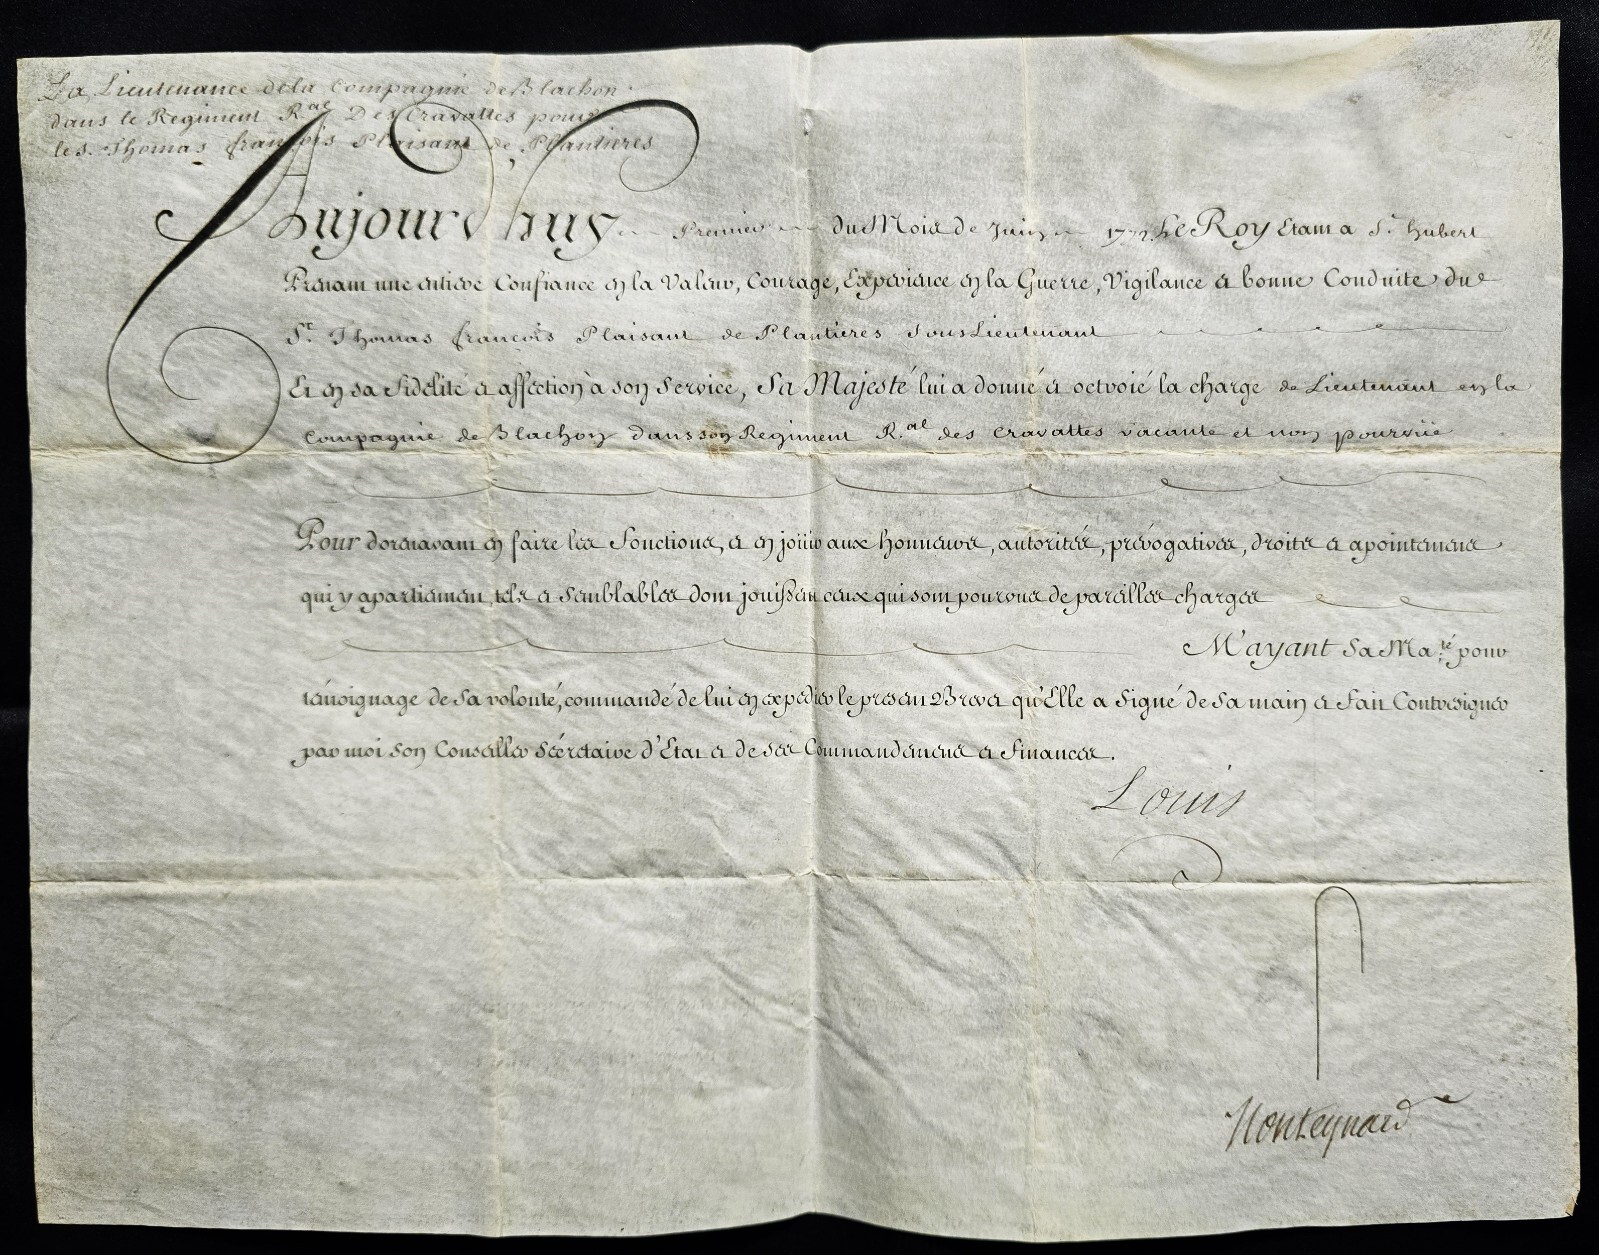 La Lieutenance dela Compagnie de Blachon
dans le Regiment R.al Des Cravattes pour
le s. Thomas françois Plaisant de Plantieres
Aujourd'huy Premier du Mois de Juin 1772 Le Roy Etant a St. hubert
Prenant une entiere Confiance en la Valeur, Courage, Experience en la Guerre, Vigilance et bonne Conduite du
Sr. Thomas françois Plaisant de Plantieres SousLieutenant
Et en sa fidelité et affection à son Service, Sa Majesté lui a donné et octroié la charge de Lieutenant en la
Compagnie de Blachon dans son Regiment R.al des cravattes vacante et non pourvüe
Pour dorenavant en faire les Fonctions, et en joüir aux honneurs, autorités, prérogatives, droits et apointemens
qui y apartiennent, tels et Semblables dont jouissent ceux qui sont pourvus de pareilles charges
M'ayant Sa Ma.té pour
témoignage de Sa volonté, commandé de lui en expedier le present Brevet qu'Elle a Signé de Sa main et Fait Contresigner
par moi Son Conseiller Sécretaire d'Etat et de Ses Commandemens et Finances.
Louis
Monteynard